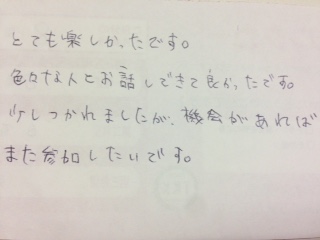 とても楽しかったです。
色々な人とお話しできて良かったです。
少しつかれましたが、機会があれば
また参加したいです。